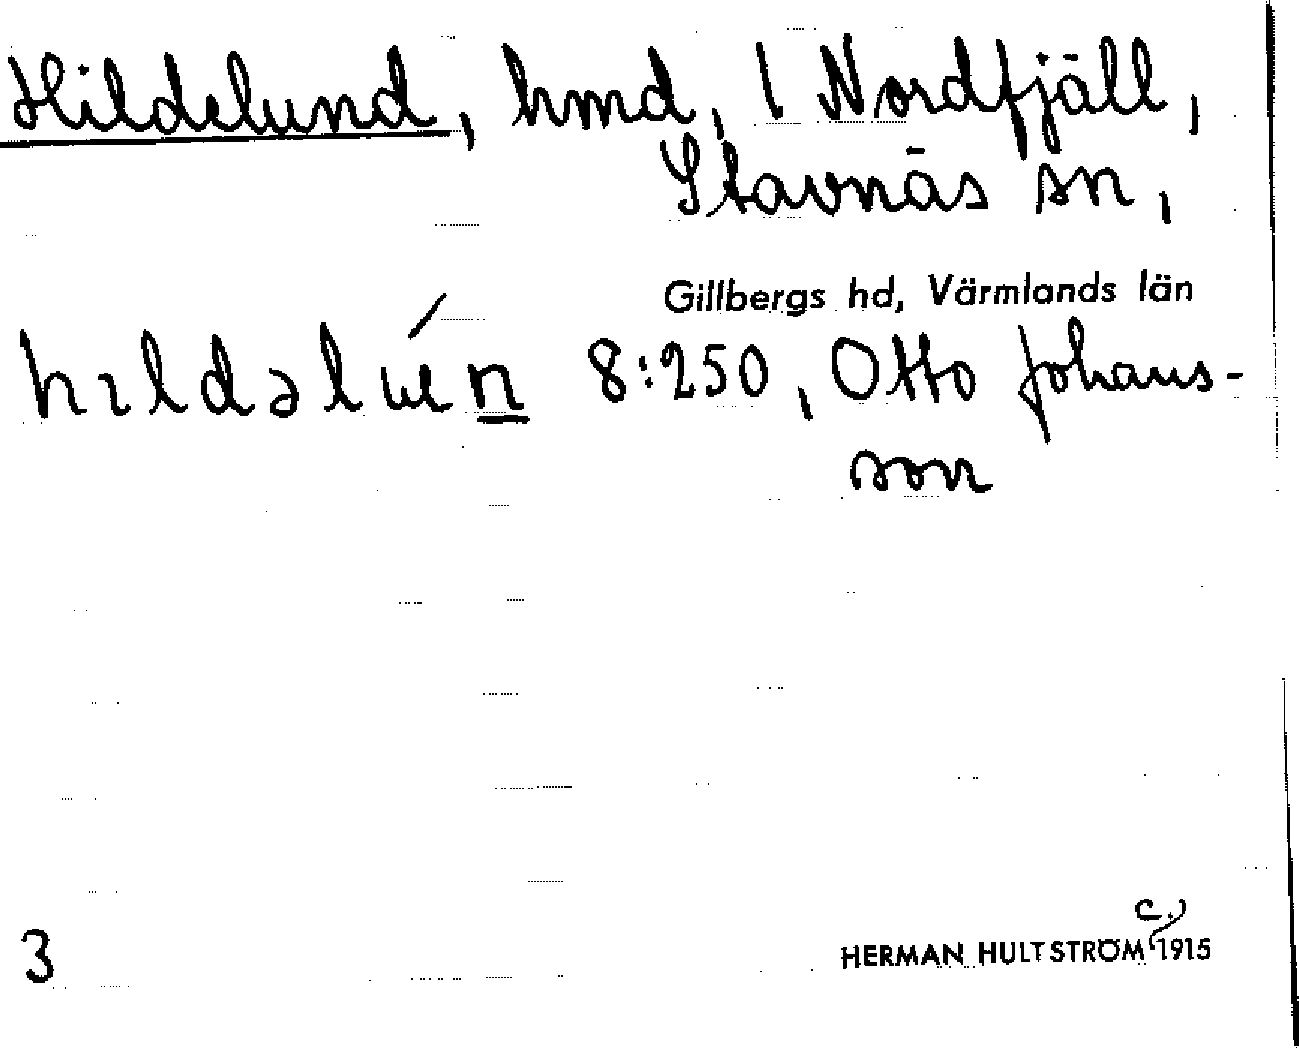 Hildelund, hmd, 1 Nordfjäll,
Stavnäs sn,
Gillbergs hd, Värmlands län
hıldəluén 8:250, Otto Johans-
son
3
c.
HERMAN HULTSTRÖM 1915